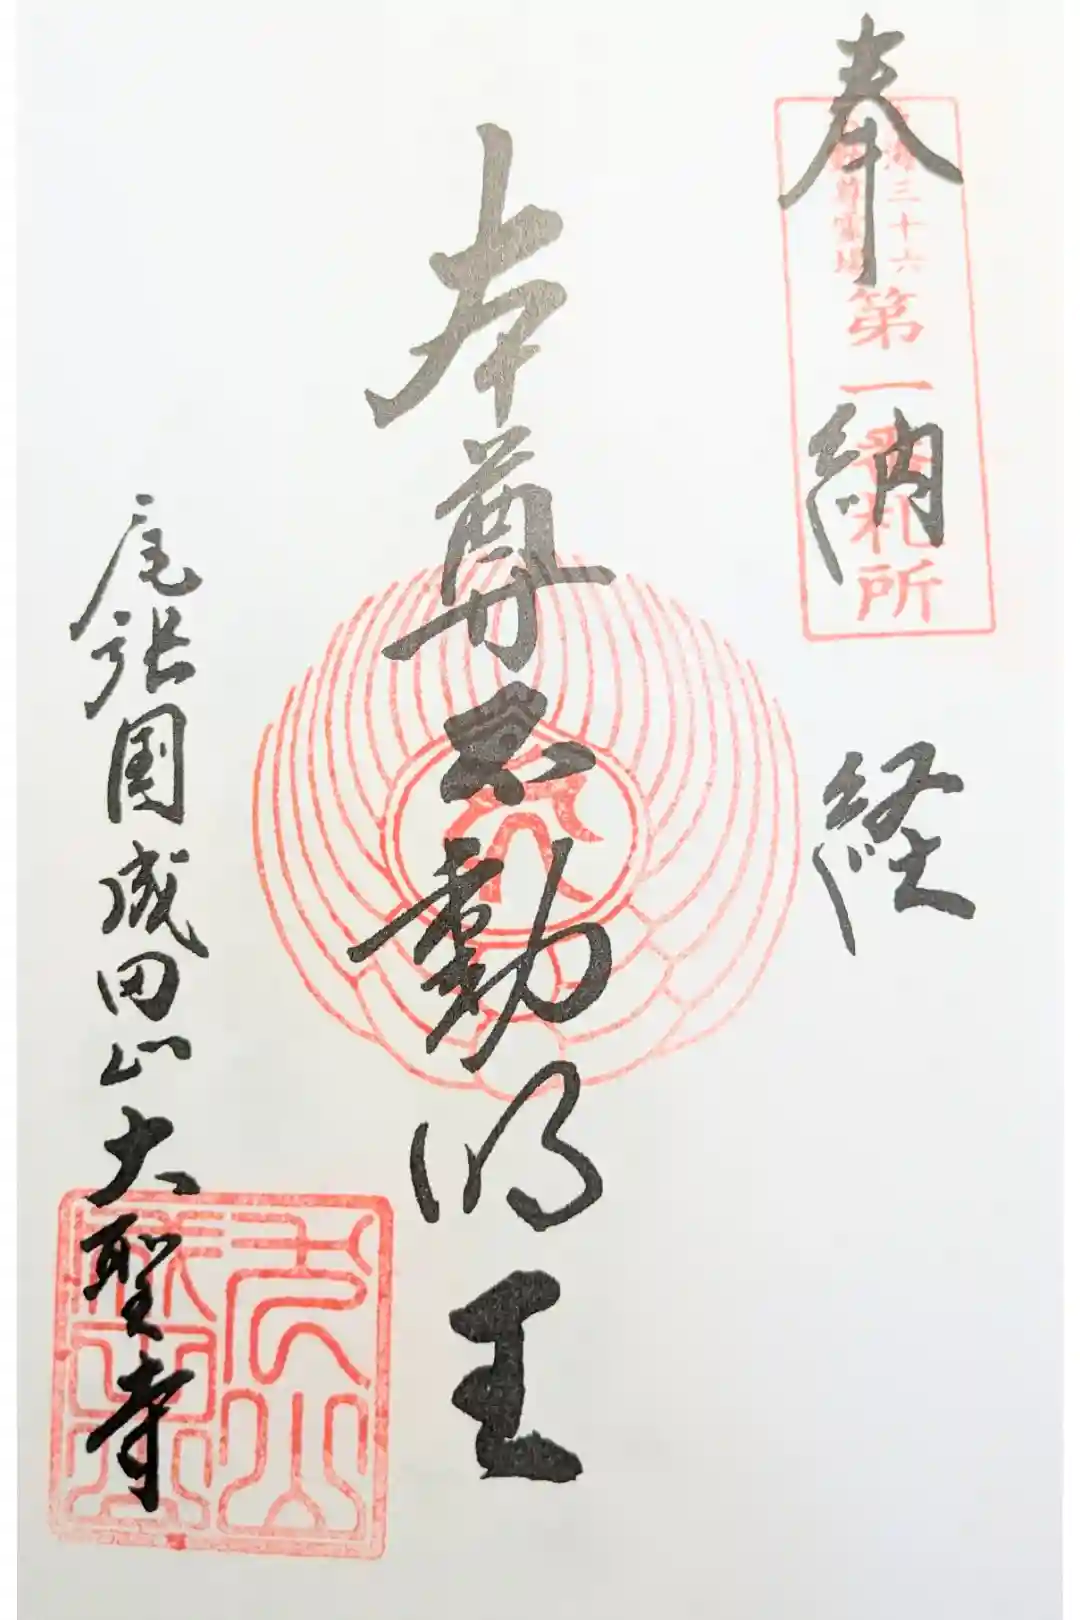 奉納経
三十六
第一番札所
本尊不動明王
尾張国成田山大聖寺